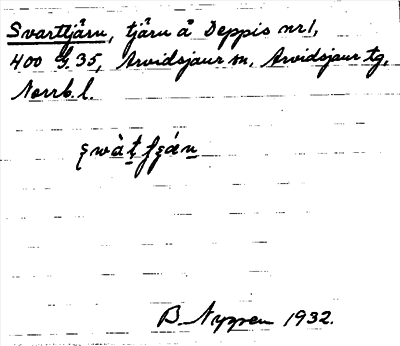 Svarttjärn, tjärn å Deppis nr 1,
400 g 35, Arvidsjaur sn, Arvidsjaur tg,
Norrb. l.
B. Nyppen 1932.